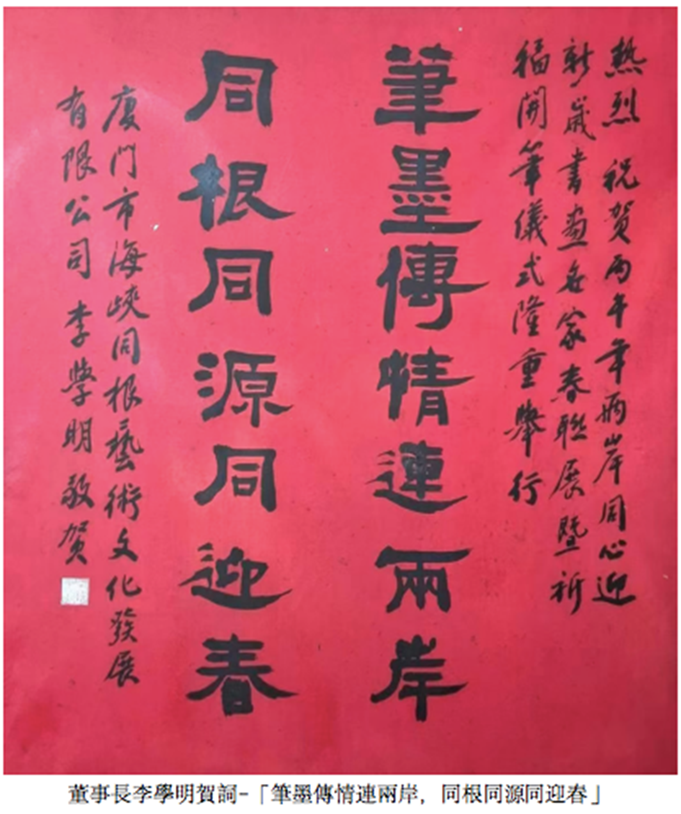 熱烈祝賀丙午年兩岸同心迎
新歲書畫名家春聯展暨祈
福開筆儀式隆重舉行
筆墨傳情連兩岸
同根同源同迎春
廈門市海峽同根藝術文化發展
有限公司李學明敬賀
董事長李學明賀詞-「筆墨傳情連兩岸，同根同源同迎春」